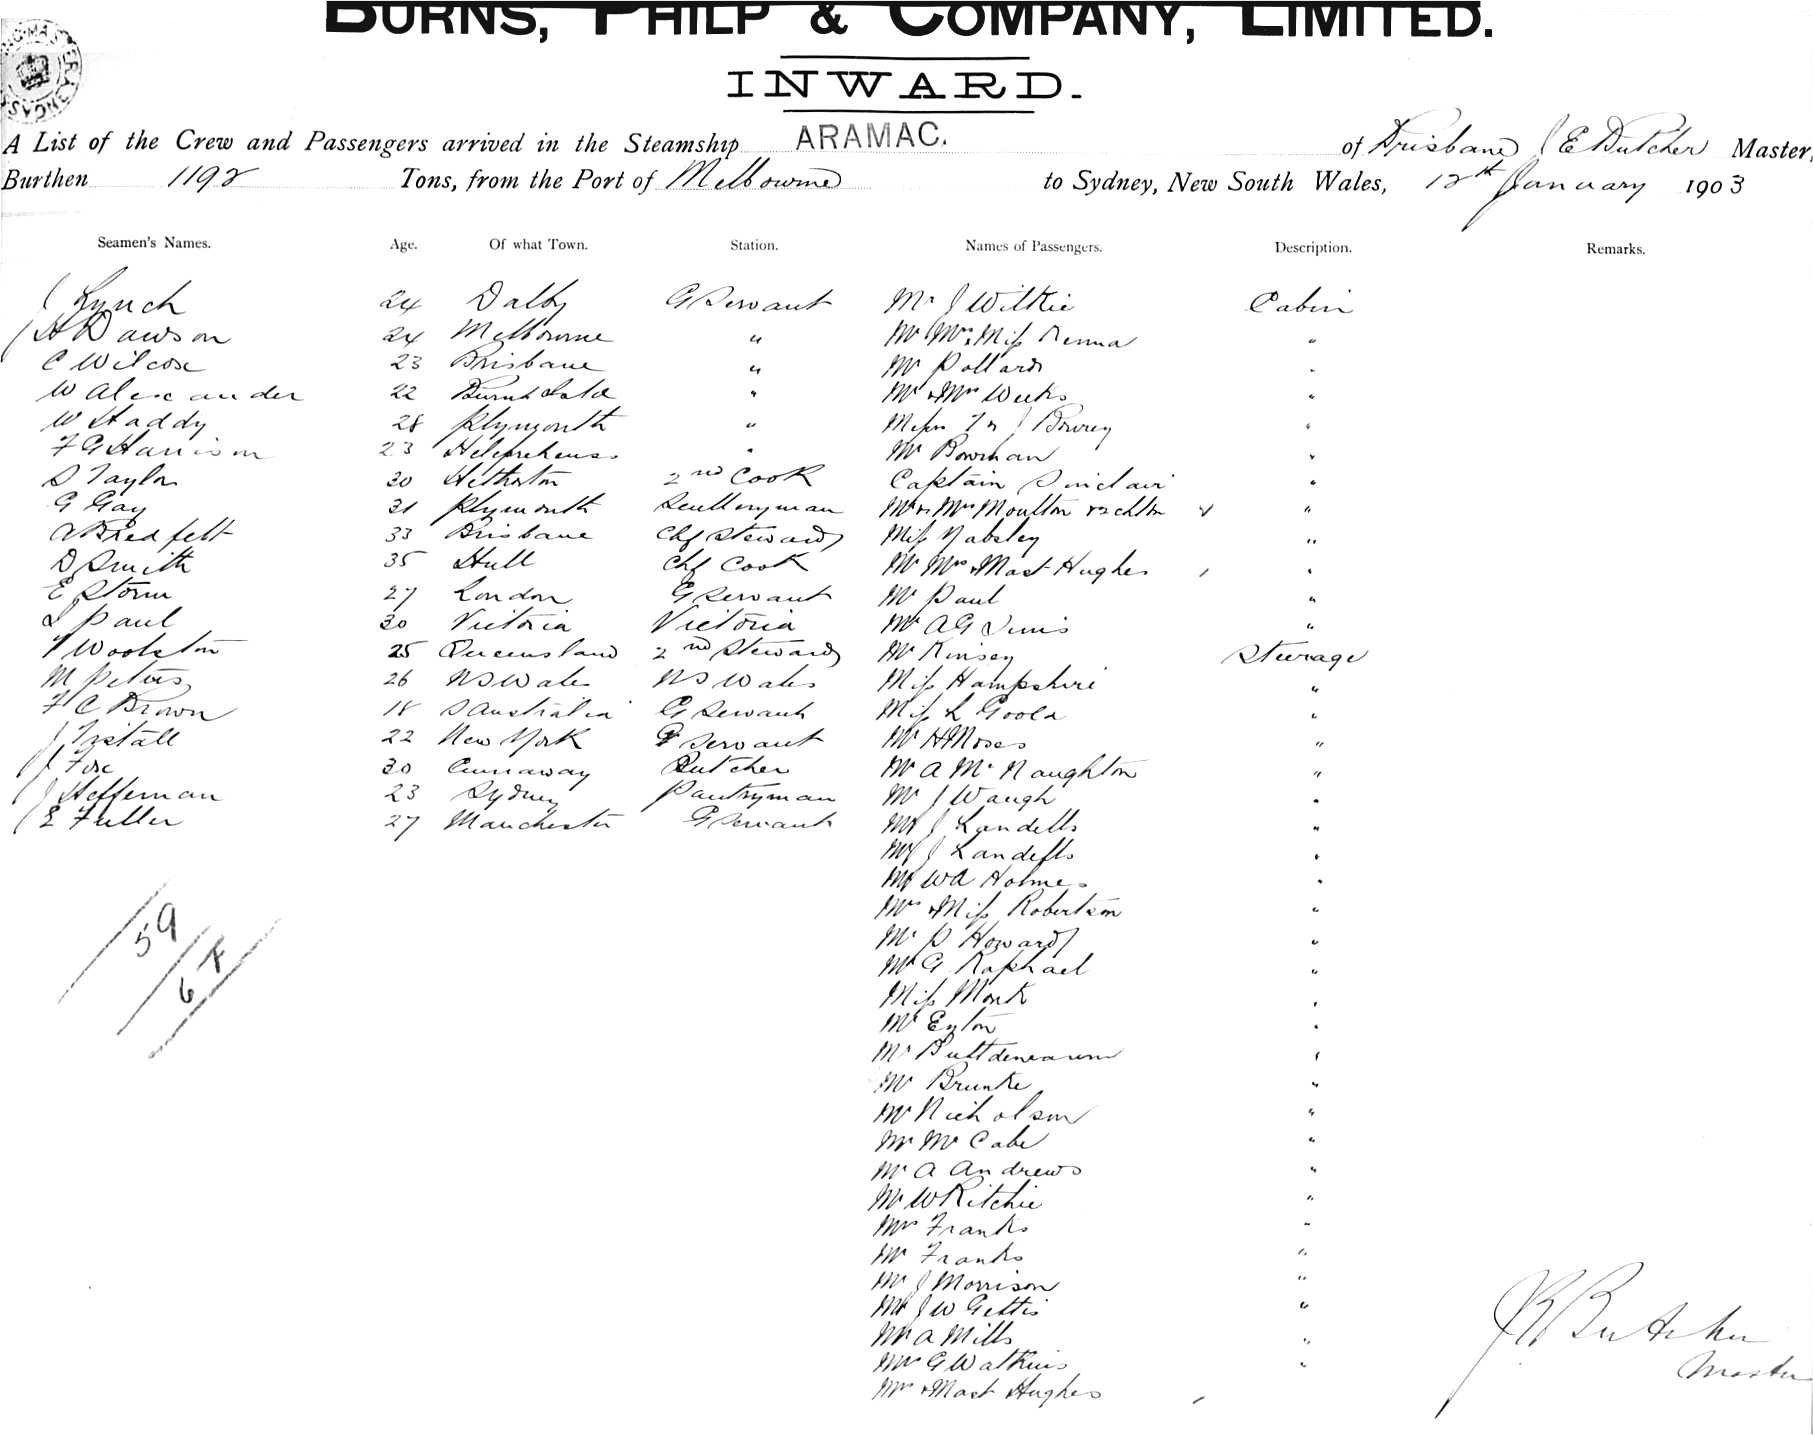 BURNS, PHILP & COMPANY, LIMITED.
INWARD.
A List of the Crew and Passengers arrived in the Steamship ARAMAC. of Brisbane J E Butcher Master,
Burthen 1192 Tons, from the Port of Melbourne to Sydney, New South Wales, 12th January 1903
Seamen's Names. Age. Of what Town. Station. Names of Passengers. Description. Remarks.
J Lynch 24 Dalby G Servant Mr J Wilkie Cabin
H Dawson 24 Melbourne " Mr Mrs & Miss "
C Wilcox 23 Brisbane " Mr Pollard "
W Alexander 22 " Mr & Mrs Weeks "
W Haddy 28 Plymouth " Misses J Bowrey "
F G Harrison 23 " Mr Bowman "
S Taylor 30 2nd Cook Captain Sinclair "
G Gay 31 Plymouth Sculleryman Mr & Mrs Moulton & 2 chldn "
A Bredfelt 33 Brisbane Chf Steward Miss Yabsley "
D Smith 35 Hull Chf Cook Mr Mrs & Mast Hughes "
E Storm 27 London G Servant Mr Paul "
Paul 30 Victoria Victoria Mr A G "
Woolston 25 Queensland 2nd Steward Mr Kinsey Steerage
M Peters 26 N S Wales N S Wales Miss Hampshire "
F C Brown 18 S Australia G Servant Miss L Goold "
J 22 New York G Servant Mr H Moses "
J Fox 30 Butcher Mr A McNaughton "
J Heffernan 23 Sydney Pantryman Mr J Waugh "
E Fuller 27 Manchester G Servant Mr J Landells "
J Landells "
Mr W A Holmes "
Mrs & Miss Robertson "
Mr P Howard "
Mr G Raphael "
59
6
Miss Monk "
Mr Eyton "
Mr "
Mr Brunke "
Mr Nicholson "
Mr McCabe "
Mr A Andrews "
Mr W Ritchie "
Mrs Franks "
Mr Franks "
Mr J Morrison "
Mr J W Gettis "
Mr A Mills "
Mr G Watkins "
Mrs & Mast Hughes
Butcher
Master